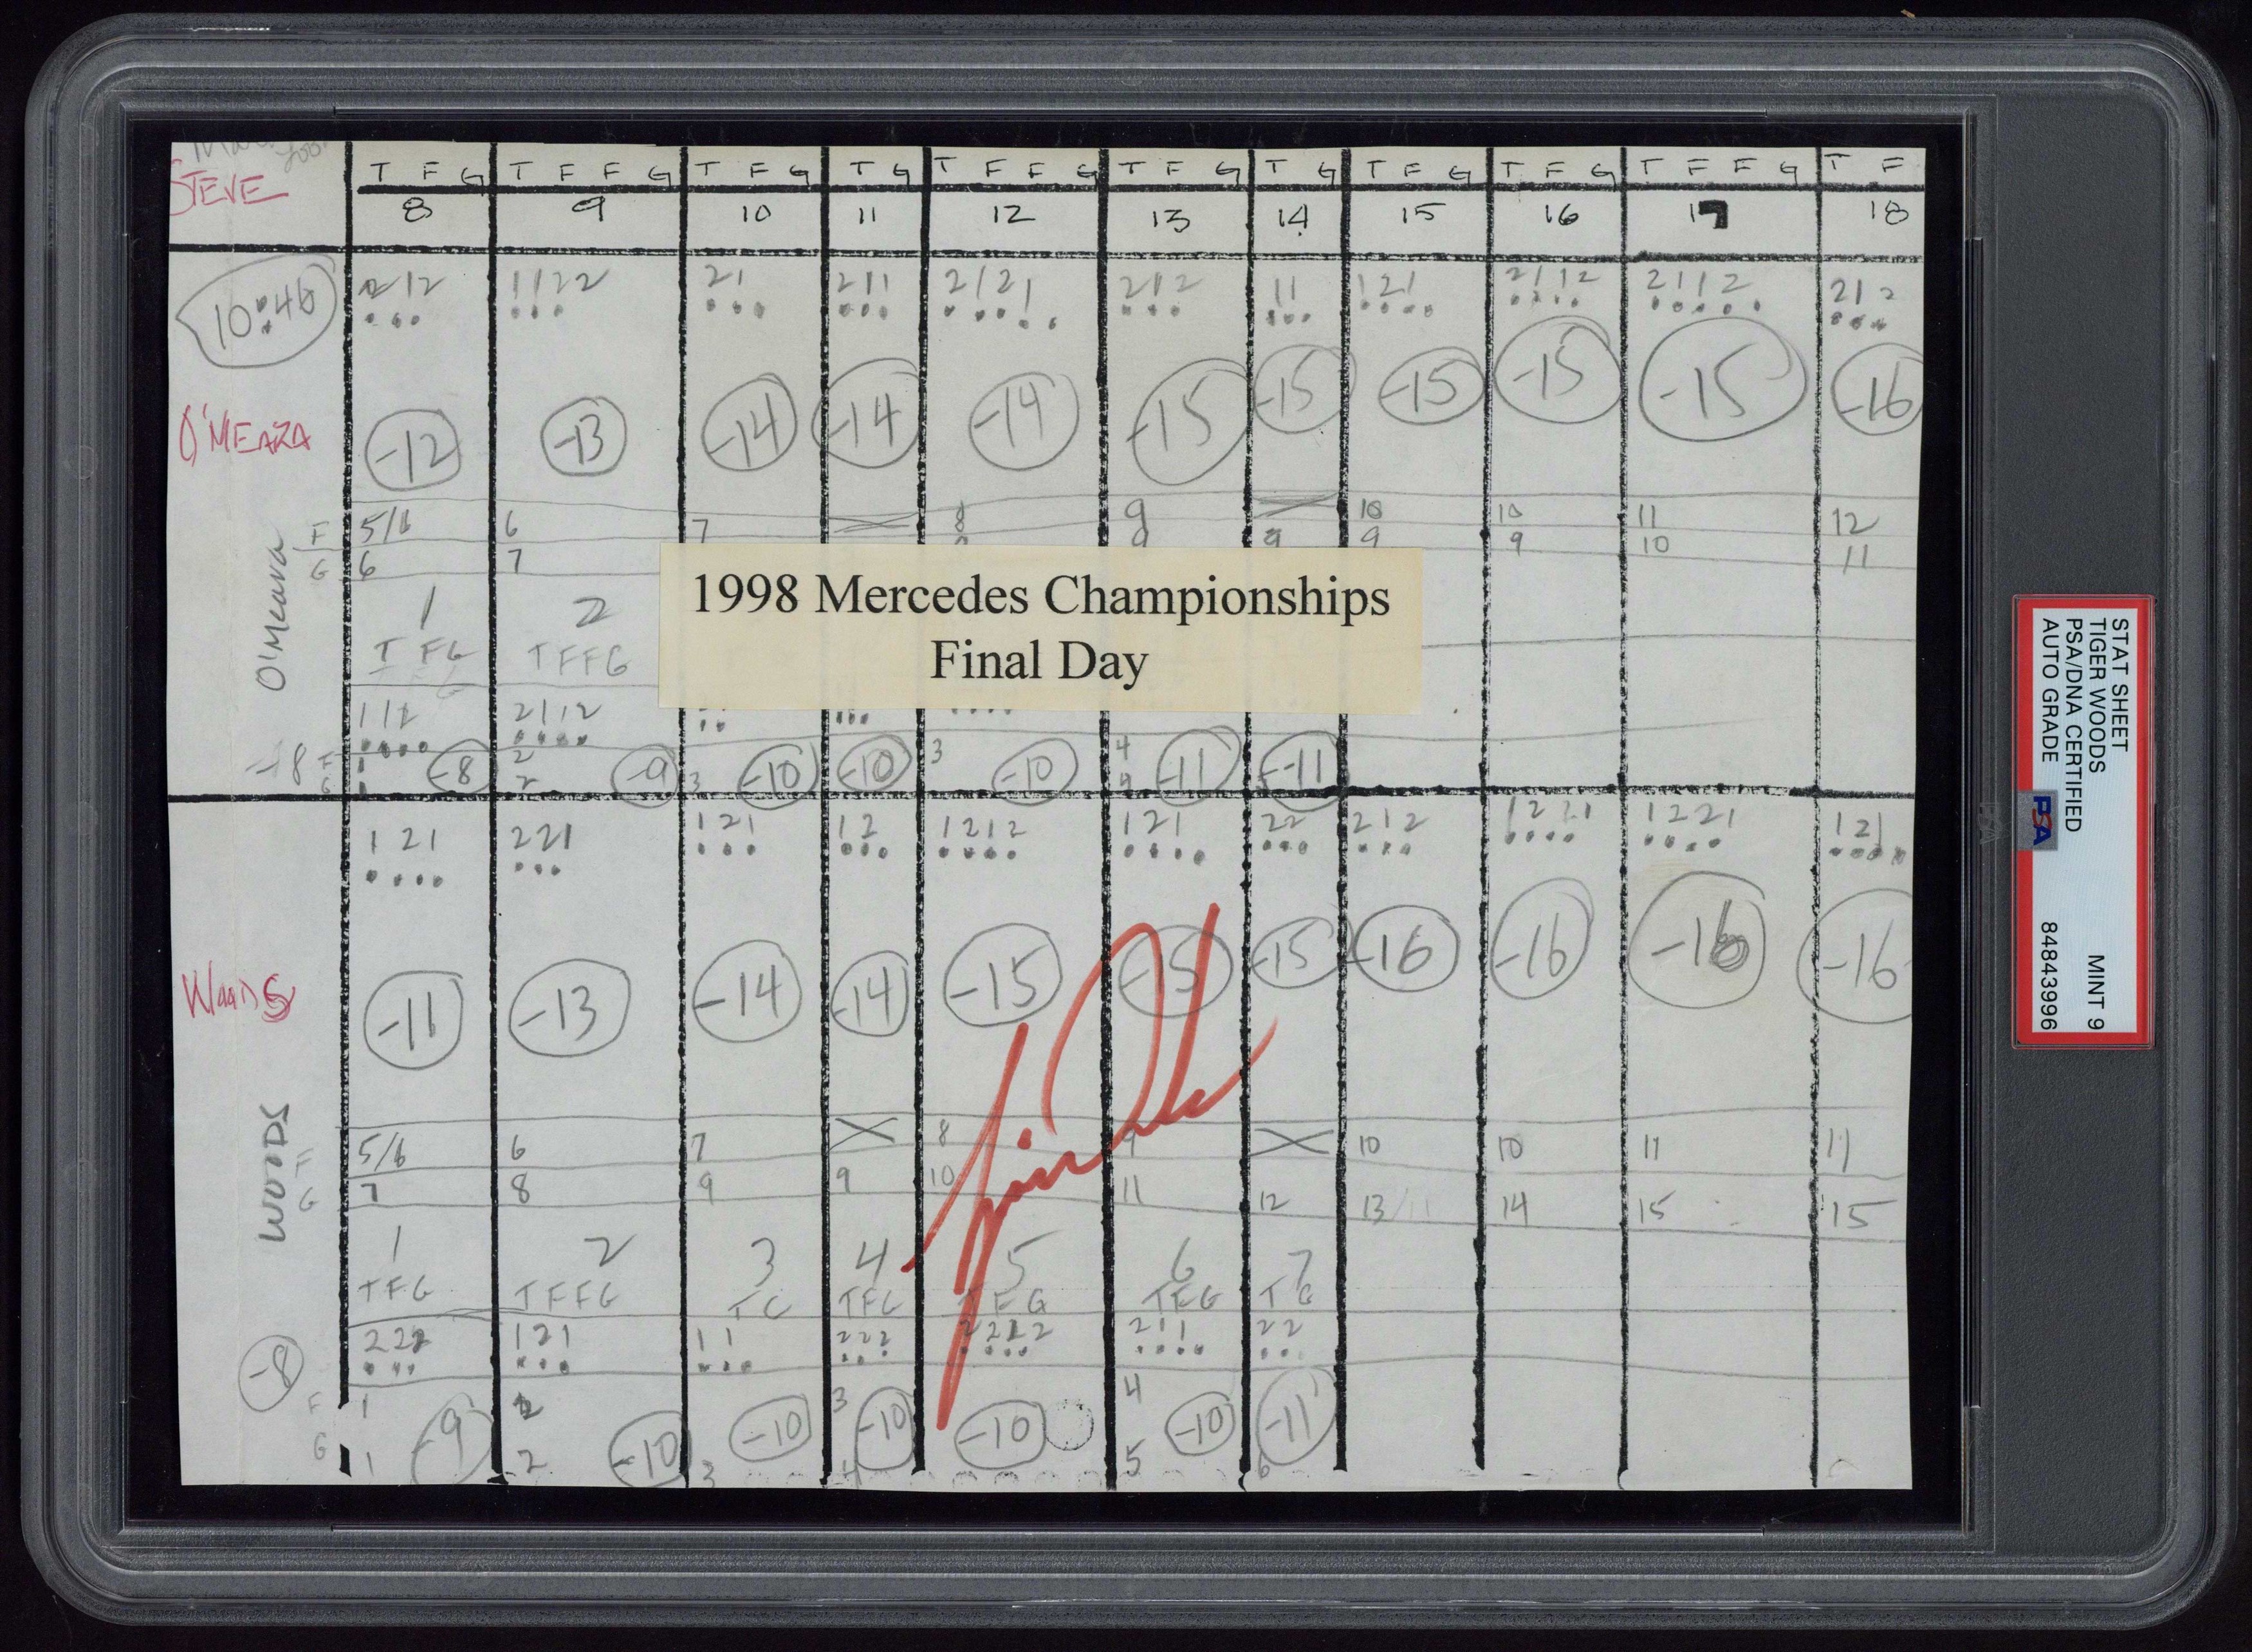 STEVE
T F G T F F G T F G T G T F F G T F G T G T F G T F G T F F G T F
8 9 10 11 12 13 14 15 16 17 18
10:46
212 1122 21 211 2121 212 11 121 2112 2112 212
O'MEARA
-12 -13 -14 -14 -14 -15 -15 -15 -15 -15 -16
O'Meara
F 5/6 6 7 8 9 10 10 11 12
G 6 7 9 9 9 9 10 11
1998 Mercedes Championships
Final Day
1 2
T F G T F F G
112 2112
-8 F 1 2 3 4
G 1 2 3 4
-8 -9 -10 -10 -10 -11 -11
121 221 121 12 1212 121 22 212 1221 1221 121
WOODS
-11 -13 -14 -14 -15 -15 -15 -16 -16 -16 -16
WOODS
F 5/6 6 7 8 9 10 10 11 11
G 7 8 9 9 10 11 12 13/11 14 15 15
1 2 3 4 5 6 7
T F G T F F G T G T F G T F G T F G T G
222 121 11 222 2212 211 22
-8
F 1 2 3 4
G 1 2 3 4 5 6
-9 -10 -10 -10 -10 -10 -11
STAT SHEET
TIGER WOODS MINT 9
PSA/DNA CERTIFIED
AUTO GRADE 84843996
PSA